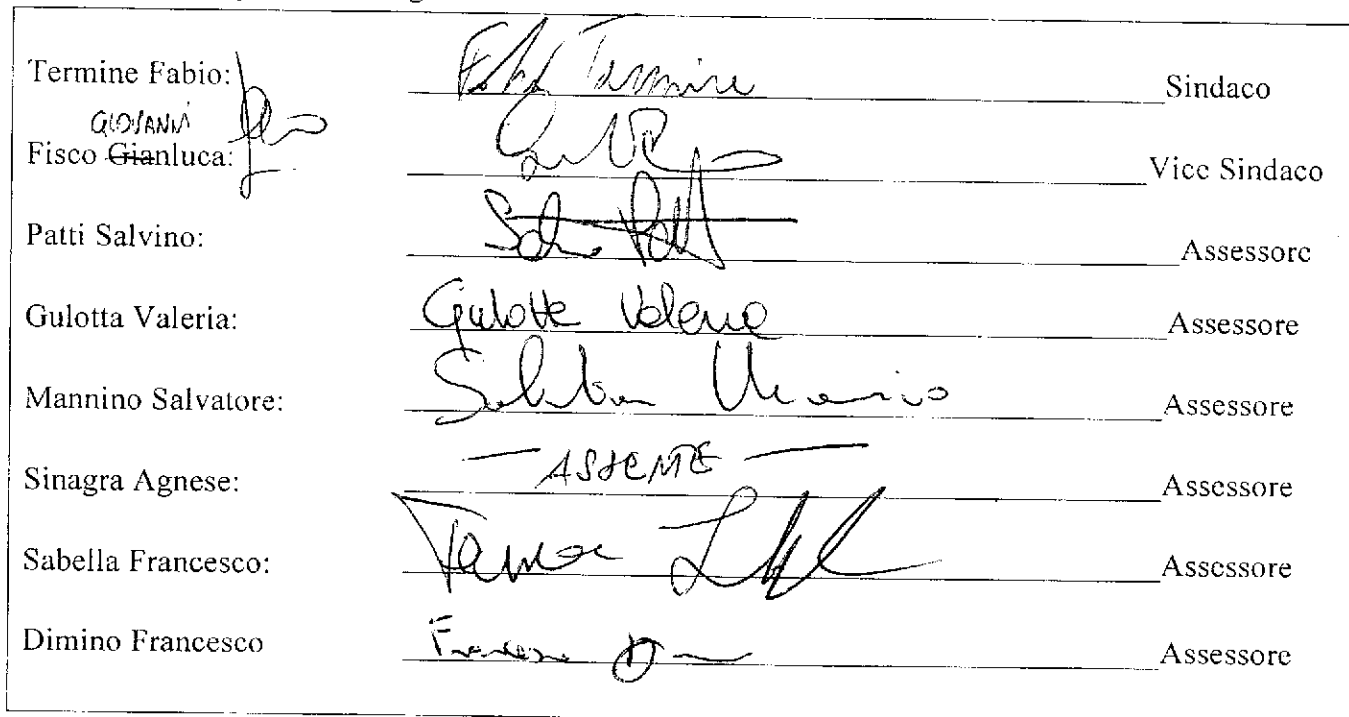 Termine Fabio: Fabio Termine Sindaco
GIOVANNI
Fisco Gianluca: Vice Sindaco
Patti Salvino: Assessore
Gulotta Valeria: Gulotta Valeria Assessore
Mannino Salvatore: Salvatore Mannino Assessore
Sinagra Agnese: — ASSENTE — Assessore
Sabella Francesco: Assessore
Dimino Francesco Francesco Assessore